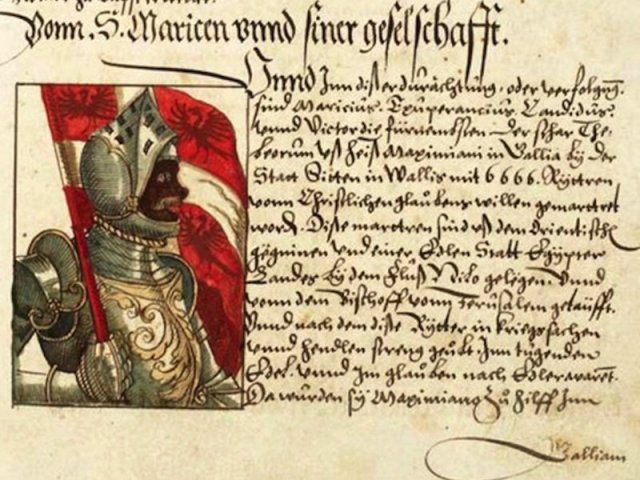 Vonn. S. Mauricen vnnd siner geselschafft.
Vnnd Inn diser durächtung. oder verfolgung.
sind Mauricius. Exuperancius. Candidus.
vnnd Victor die fürnembsten der schar The-
beorum vß heiß Maximiani in Gallia by der
Statt Sitten in Wallis mit 6666. Ryttren
vonn Christlichen glaubens willen gemarttret
word. Dise marttrer sind vß dem Orientisch
gögninen vnd einer Edlen Statt Egypter
Landes by dem Fluß Nilo gelegen. Vnnd
vonn dem Bischoff vonn Jerusalem getaüfft.
Vnnd nach dem dise Rytter in kriegssachen
vnnd hendlen streng geübt Inn tugenden
Edel. vnnd Im glauben nach Edler warent.
Da wurden sy Maximiano zu hilff Inn
Galliam